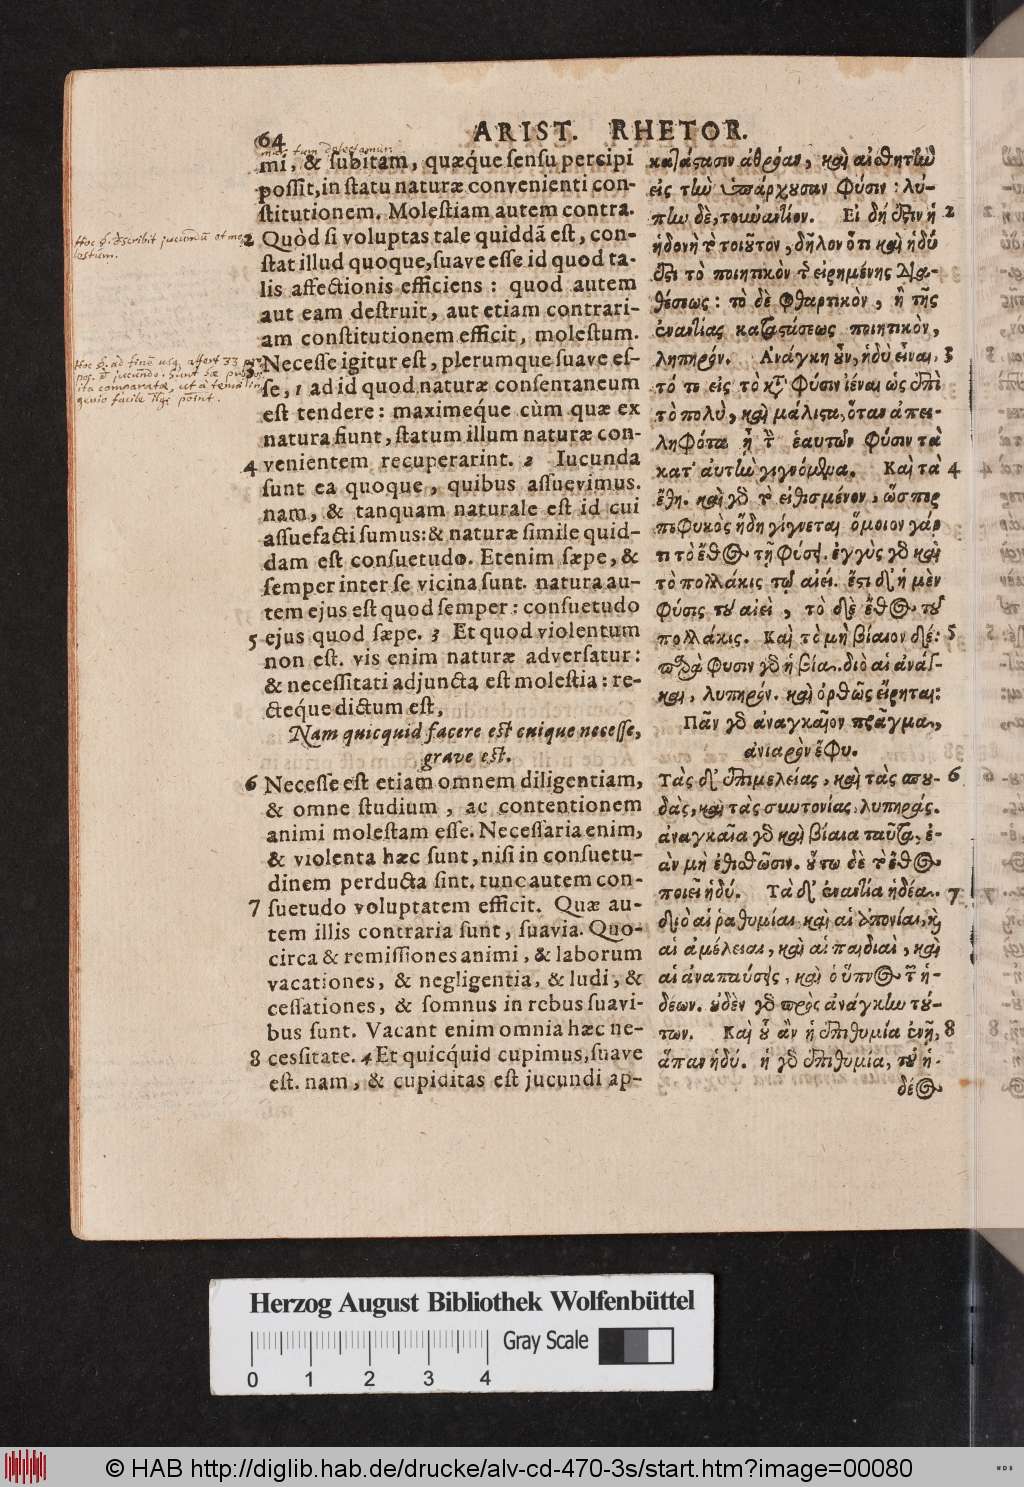 64
ARIST. RHETOR.
mi, & ſubitam, quæque ſenſu percipi
poſſit, in ſtatu naturæ convenienti con-
ſtitutionem. Moleſtiam autem contra.
2 Quòd ſi voluptas tale quiddã eſt, con-
ſtat illud quoque, ſuave eſſe id quod ta-
lis affectionis efficiens : quod autem
aut eam deſtruit, aut etiam contrari-
am conſtitutionem efficit, moleſtum.
3 Neceſſe igitur eſt, plerumque ſuave eſ-
ſe, 1 ad id quod naturæ conſentaneum
eſt tendere : maximeq́ue cùm quæ ex
natura fiunt, ſtatum illum naturæ con-
4 venientem recuperarint. 2 Iucunda
ſunt ea quoque, quibus aſſuevimus.
nam, & tanquam naturale eſt id cui
aſſuefacti ſumus: & naturæ ſimile quid-
dam eſt conſuetudo. Etenim ſæpe, &
ſemper inter ſe vicina ſunt. natura au-
tem ejus eſt quod ſemper : conſuetudo
5 ejus quod ſæpe. 3 Et quod violentum
non eſt. vis enim naturæ adverſatur :
& neceſſitati adjuncta eſt moleſtia : re-
cteq́ue dictum eſt,
Nam quicquid facere eſt cuique neceſſe,
grave eſt.
6 Neceſſe eſt etiam omnem diligentiam,
& omne ſtudium, ac contentionem
animi moleſtam eſſe. Neceſſaria enim,
& violenta hæc ſunt, niſi in conſuetu-
dinem perducta ſint. tunc autem con-
7 ſuetudo voluptatem efficit. Quæ au-
tem illis contraria ſunt, ſuavia. Quo-
circa & remiſſiones animi, & laborum
vacationes, & negligentia, & ludi, &
ceſſationes, & ſomnus in rebus ſuavi-
bus ſunt. Vacant enim omnia hæc ne-
8 ceſſitate. 4 Et quicq́uid cupimus, ſuave
eſt. nam, & cupiditas eſt jucundi ap-
κατάστασιν ἀθρόαν, καὶ αἰσθητὴν
εἰς τὴν ὑπάρχουσαν φύσιν : λύ-
πην δὲ, τοὐναντίον. Εἰ δή ἐστιν ἡ 2
ἡδονὴ τὸ τοιοῦτον, δῆλον ὅτι καὶ ἡδύ
ἐστι τὸ ποιητικὸν τῆς εἰρημένης δια-
θέσεως : τὸ δὲ φθαρτικὸν, ἢ τῆς
ἐναντίας καταστάσεως ποιητικὸν,
λυπηρόν. Ἀνάγκη οὖν, ἡδὺ εἶναι, 3
τό τι εἰς τὸ κατὰ φύσιν ἰέναι ὡς ἐπὶ
τὸ πολὺ, καὶ μάλιστα, ὅταν ἀπει-
ληφότα ᾖ τὴν ἑαυτῶν φύσιν τὰ
κατ' αὐτὴν γιγνόμενα. Καὶ τὰ 4
ἔθη. καὶ γὰρ τὸ εἰθισμένον, ὥσπερ
πεφυκὸς ἤδη γίγνεται ὅμοιον γάρ
τι τὸ ἔθος τῇ φύσει. ἐγγὺς γὰρ καὶ
τὸ πολλάκις τῷ ἀεί. ἔστι δ' ἡ μὲν
φύσις τοῦ αἰεὶ, τὸ δὲ ἔθος τοῦ
πολλάκις. Καὶ τὸ μὴ βίαιον δέ : 5
παρὰ φυσιν γὰρ ἡ βία. διὸ αἱ ἀνάγ-
και, λυπηρόν. καὶ ὀρθῶς εἴρηται :
Πᾶν γὰρ ἀναγκαῖον πρᾶγμα,
ἀνιαρὸν ἔφυ.
Τὰς δ' ἐπιμελείας, καὶ τὰς σπου- 6
δὰς, καὶ τὰς συντονίας, λυπηράς.
ἀναγκαῖα γὰρ καὶ βίαια ταῦτα, ἐ-
ὰν μὴ ἐθισθῶσιν. οὕτω δὲ τὸ ἔθος
ποιεῖ ἡδύ. Τὰ δ' ἐναντία ἡδέα. 7
διὸ αἱ ῥαθυμίαι καὶ αἱ ἀπονίαι, καὶ
αἱ ἀμέλειαι, καὶ αἱ παιδιαὶ, καὶ
αἱ ἀναπαύσεις, καὶ ὁ ὕπνος τῶν ἡ-
δέων. οὐδὲν γὰρ πρὸς ἀνάγκην τού-
των. Καὶ οὗ ἂν ἡ ἐπιθυμία ἐνῇ, 8
ἅπαν ἡδύ. ἡ γὰρ ἐπιθυμία, τοῦ ἡ-
δέος
Herzog August Bibliothek Wolfenbüttel
Gray Scale
0 1 2 3 4
© HAB http://diglib.hab.de/drucke/alv-cd-470-3s/start.htm?image=00080